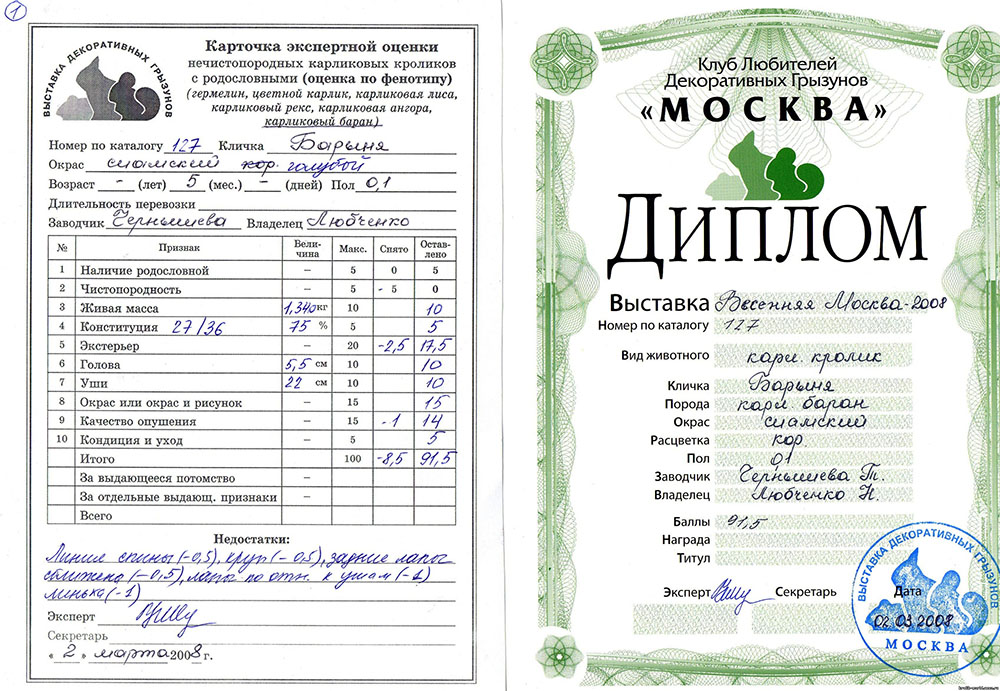 1
ВЫСТАВКА ДЕКОРАТИВНЫХ ГРЫЗУНОВ
Карточка экспертной оценки
нечистопородных карликовых кроликов
с родословными (оценка по фенотипу)
(гермелин, цветной карлик, карликовая лиса,
карликовый рекс, карликовая ангора,
карликовый баран)
Номер по каталогу 127 Кличка Барыня
Окрас сиамский кор. голубой
Возраст - (лет) 5 (мес.) - (дней) Пол 0,1
Длительность перевозки
Заводчик Чернышева Владелец Любченко
№ Признак Вели-чина Макс. Снято Остав-лено
1 Наличие родословной – 5 0 5
2 Чистопородность – 5 - 5 0
3 Живая масса 1,340 кг 10 10
4 Конституция 27/36 75 % 5 5
5 Экстерьер – 20 -2,5 17,5
6 Голова 5,5 см 10 10
7 Уши 22 см 10 10
8 Окрас или окрас и рисунок – 15 15
9 Качество опушения – 15 -1 14
10 Кондиция и уход – 5 5
Итого 100 -8,5 91,5
За выдающееся потомство –
За отдельные выдающ. признаки –
Всего
Недостатки:
Линие спины (-0,5), круп (-0,5), задние лапы
сближена (-0,5), лапы по отн. к ушам (-1)
линька (-1)
Эксперт
Секретарь
« 2 » марта 2008 г.
Клуб Любителей
Декоративных Грызунов
«МОСКВА»
ДИПЛОМ
Выставка Весенняя Москва-2008
Номер по каталогу 127
Вид животного карл. кролик
Кличка Барыня
Порода карл баран
Окрас сиамский
Расцветка кор
Пол 01
Заводчик Чернышева Т.
Владелец Любченко Н.
Баллы 91,5
Награда
Титул
Эксперт Секретарь
ВЫСТАВКА ДЕКОРАТИВНЫХ ГРЫЗУНОВ
Дата
02 03 2008
МОСКВА